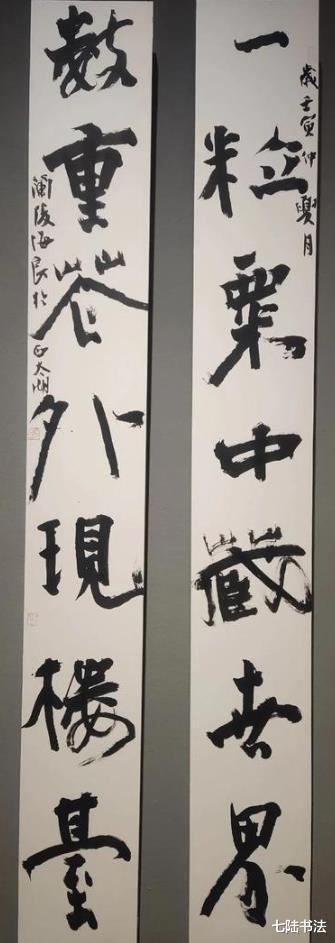 歲壬寅仲夏月
一粒粟中藏世界
數重花外現樓臺
蘭陵海民於西太湖
七陆书法